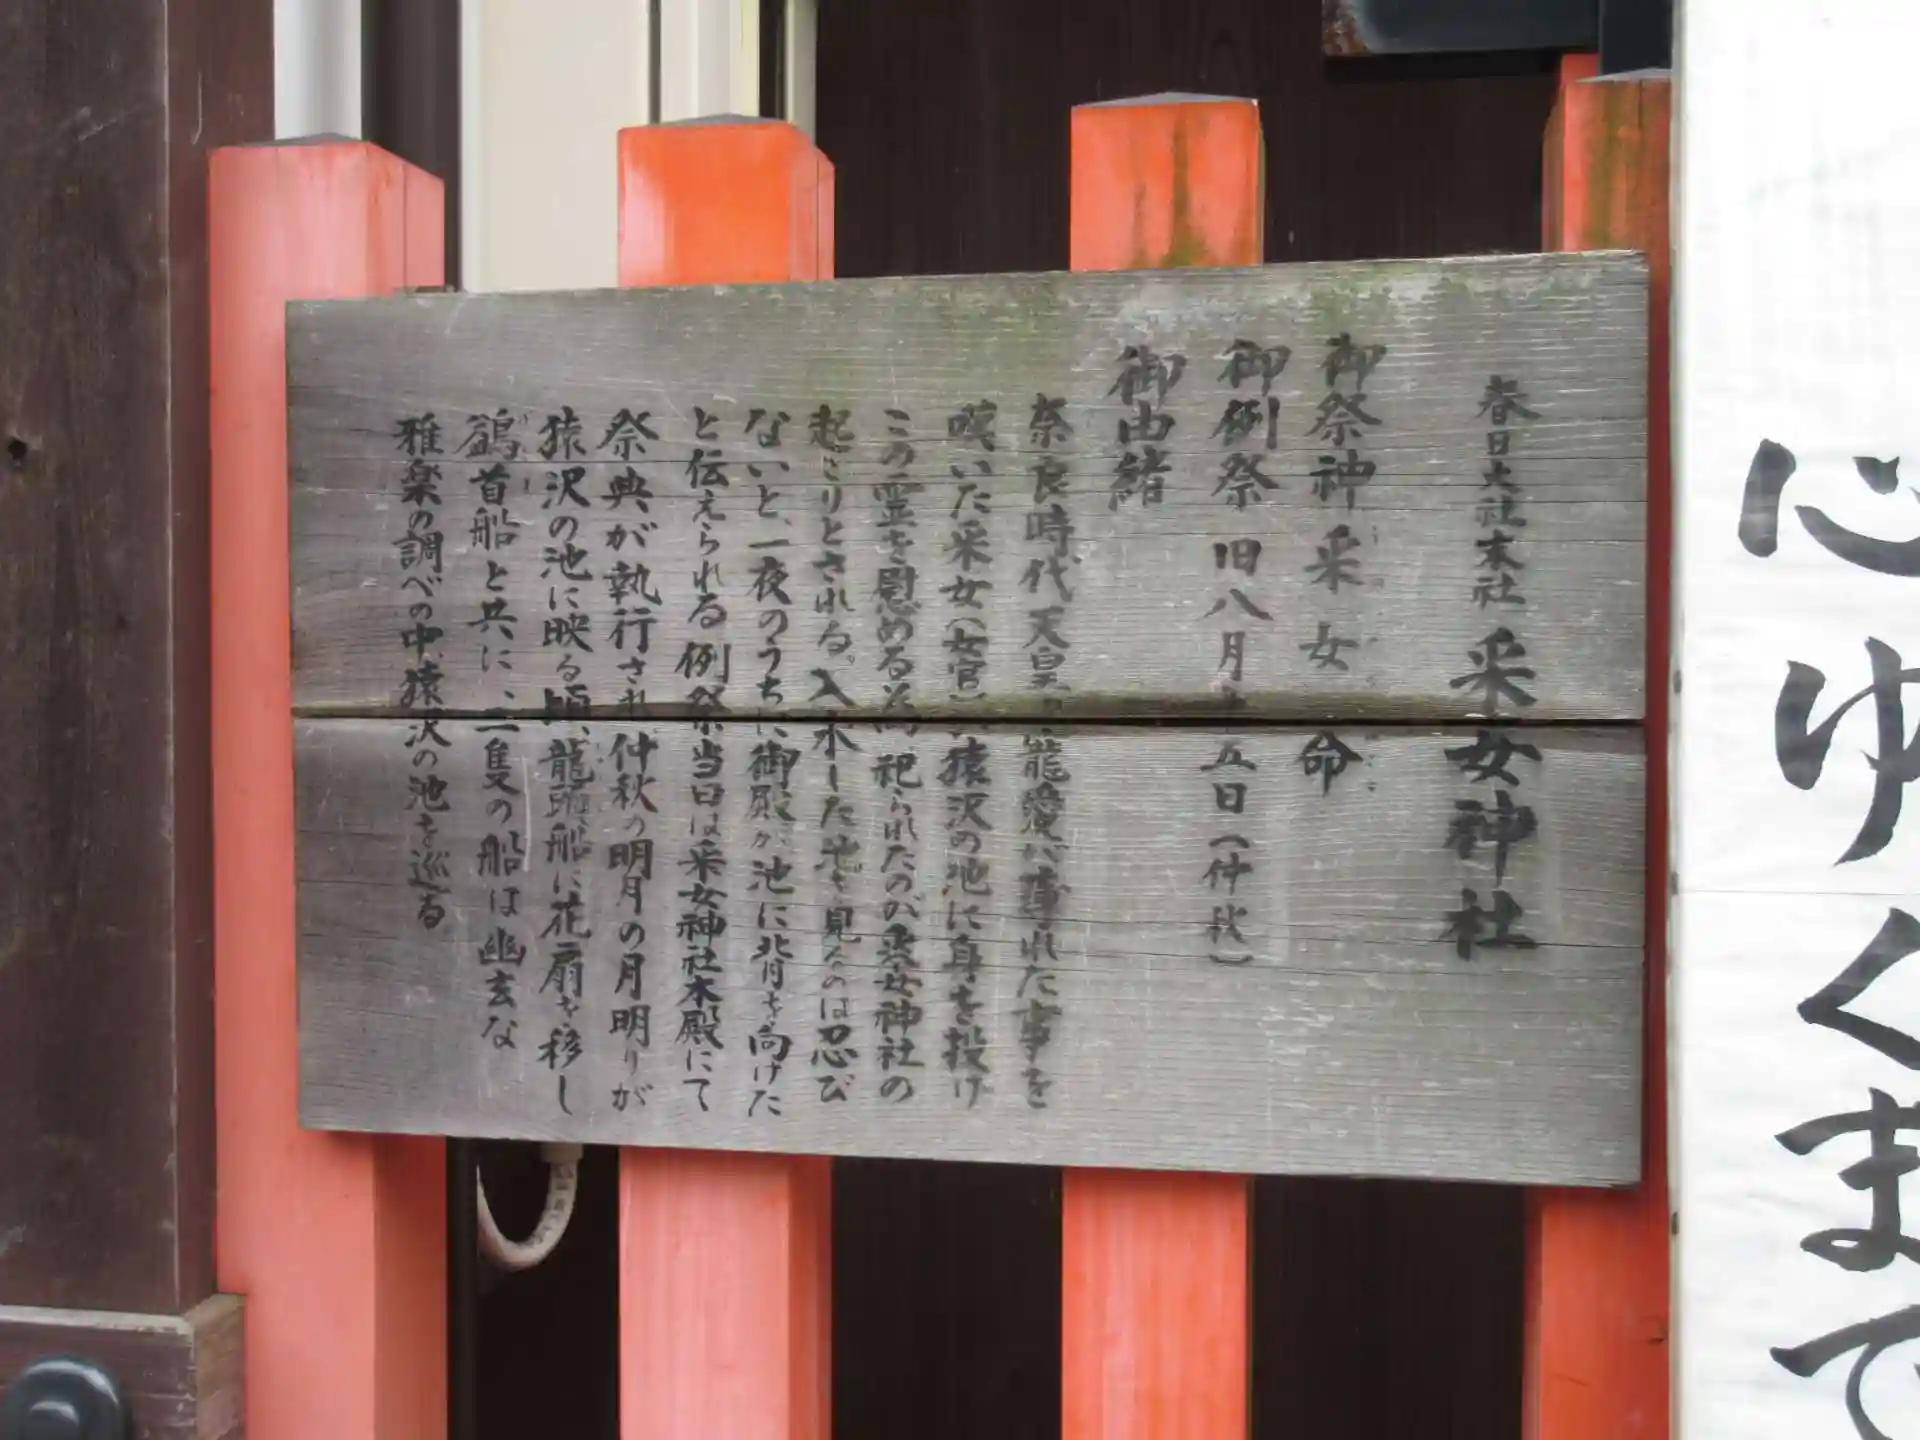 春日大社末社 采女神社
御祭神 采女命
御例祭 旧八月十五日(仲秋)
御由緒
奈良時代天皇の寵愛が薄れた事を
嘆いた采女(女官)が猿沢の池に身を投げ
この霊を慰める為、祀られたのが采女神社の
起こりとされる。入水した池を見るのは忍び
ないと、一夜のうちに御殿が池に背を向けた
と伝えられる 例祭当日は采女神社本殿にて
祭典が執行され、仲秋の明月の月明りが
猿沢の池に映る頃、龍頭船に花扇を移し
鷁首船と共に、二隻の船は幽玄な
雅楽の調べの中、猿沢の池を巡る
心ゆくまで